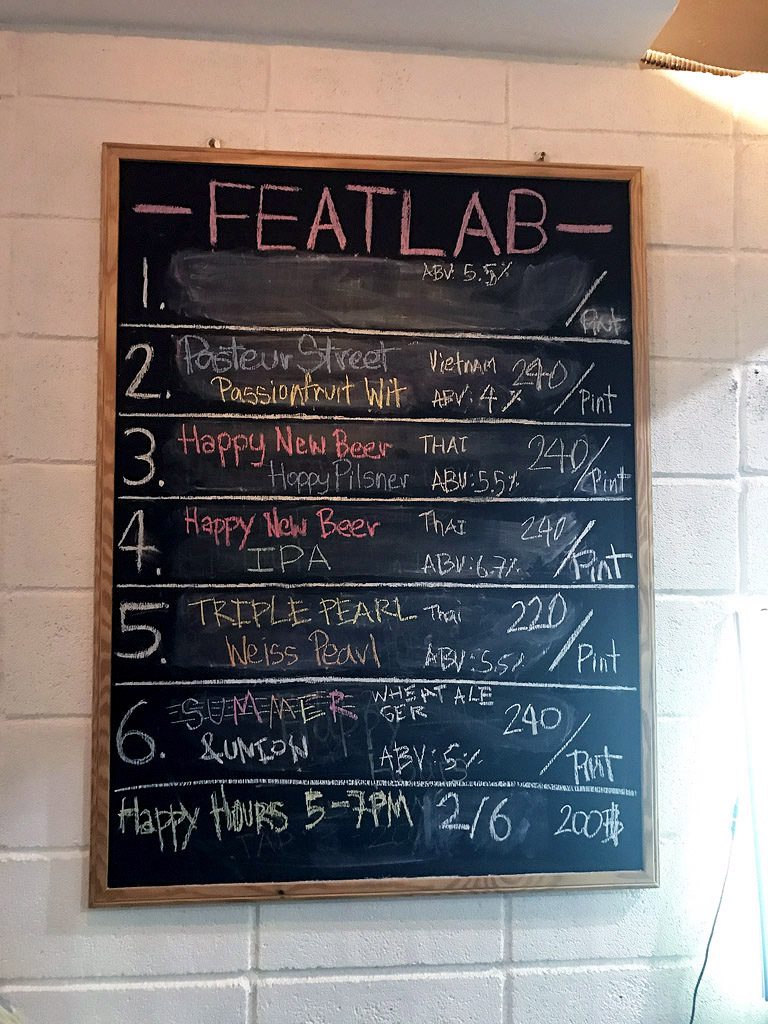 -FEATLAB-
1. ABV: 5.5% /Pint
2. Pasteur Street Vietnam 240/Pint
Passionfruit Wit ABV: 4%
3. Happy New Beer THAI 240/Pint
Hoppy Pilsner ABV: 5.5%
4. Happy New Beer THAI 240/Pint
IPA ABV: 6.7%
5. TRIPLE PEARL Thai 220/Pint
Weiss Pearl ABV: 5.5%
6. SUMMER WHEAT ALE 240/Pint
GER
&UNION ABV: 5%
Happy Hours 5-7PM 2/6 200฿